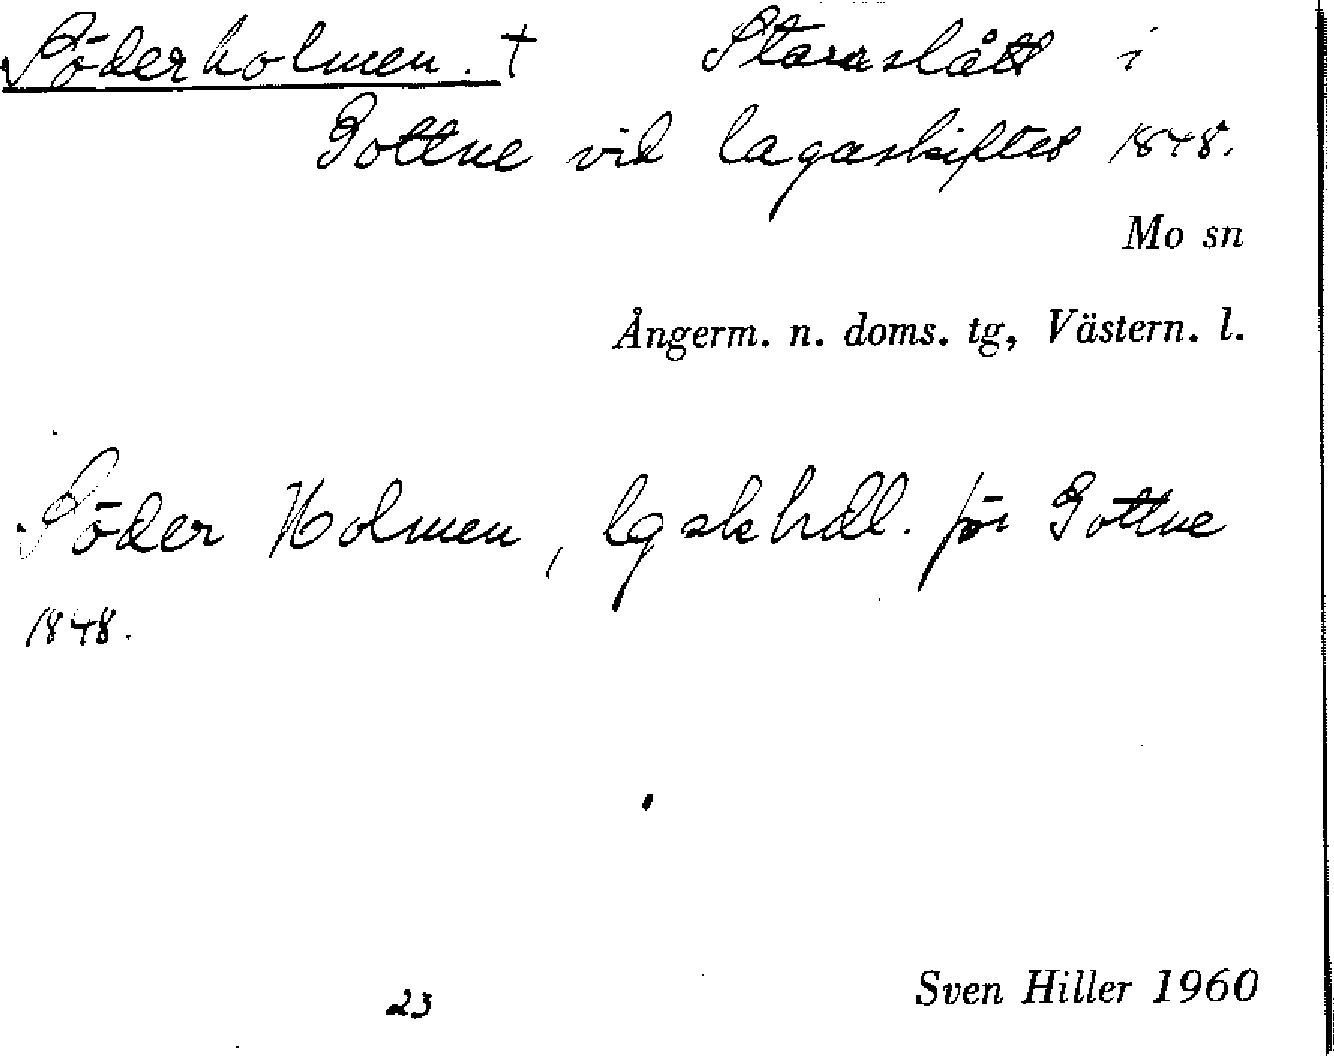 Söderholmen. † Starrslått i
Gottne vid lagaskiftet 1848.
Mo sn
Ångerm. n. doms. tg, Västern. l.
Söder Holmen, lgskhdl. för Gottne
1848.
23
Sven Hiller 1960